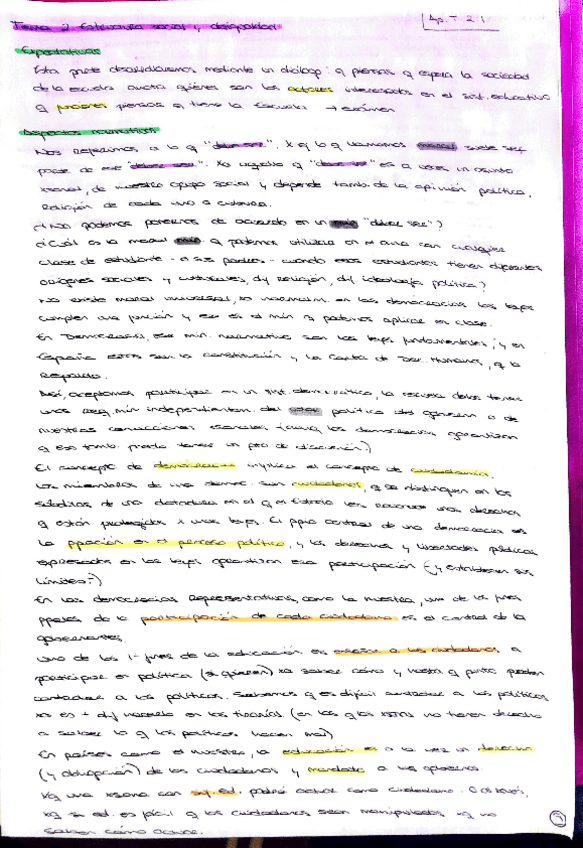 Tema 2. Estructura social y desigualdad
Ap. T 2.1
Expectativas
Esta parte desarrollaremos mediante un diálogo: q piensas q espera la sociedad
de la escuela quiénes son los actores interesados en el sist. educativo
q piensas q tiene la Escuela → exámen
Aspectos normativos
Nos referimos a lo q "debe ser". X q lo q llamamos moral suele ser
parte de ese "debe ser". Xo aquello q "debe ser" es a veces un asunto
xsonal, de nuestro grupo social y depende tanto de la opinión política,
Religión de cada uno o cultura.
¿No podemos ponernos de acuerdo en un "debe ser"?
¿Cuál es la moral q podemos utilizar en el aula con cualquier
clase de estudiante - o sus padres - cuando esos estudiantes tienen diferentes
orígenes sociales y culturales, dif religión, dif ideología política?
No existe moral universal, xo normalm. en las democracias las leyes
cumplen una función y ese es el mín q podemos aplicar en clase.
En Democracia, ese mín. normativo son las leyes fundamentales, y en
España estos son la constitución y la Carta de Der. Humanos, q la
Respalda.
Así, aceptamos participar en un sist. democrático, la escuela debe tener
unos Req. mín independientem. del político del gobierno o de
nuestras convicciones (aunq las democracias garantizan
q eso tamb. pueda tener un pto de discusión.)
El concepto de democracia implica el concepto de ciudadanía.
Los miembros de una democ. son ciudadanos, q se distinguen en los
súbditos de una dictadura en el q el Estado les reconoce unos derechos
q están protegidos x unas leyes. El ppio central de una democracia es
la ppación en el proceso político, y los derechos y libertades públicas
expresados en las leyes garantizan esa participación (y establecen sus
límites.)
En las democracias Representativas, como la nuestra, una de las funes
ppales de la participación de cada ciudadano es el control de los
gobernantes.
Uno de los 1os fines de la educación es enseñar a los ciudadanos a
participar en política (si quieren) xa saber cómo y hasta q punto pueden
controlar a los políticos. Sabemos q es difícil controlar a los políticos
xo es + dif hacerlo en las tiranías (en las q las xsonas no tienen derecho
a saber lo q los políticos hacen mal)
En países como el nuestro, la educación es a la vez un derecho
(y obligación) de los ciudadanos y mandato a los gobiernos.
Xq una xsona con sufi. ed. podrá actuar como ciudadano.
xq si ed. es fácil q los ciudadanos sean manipulados xq no
saben cómo actuar.